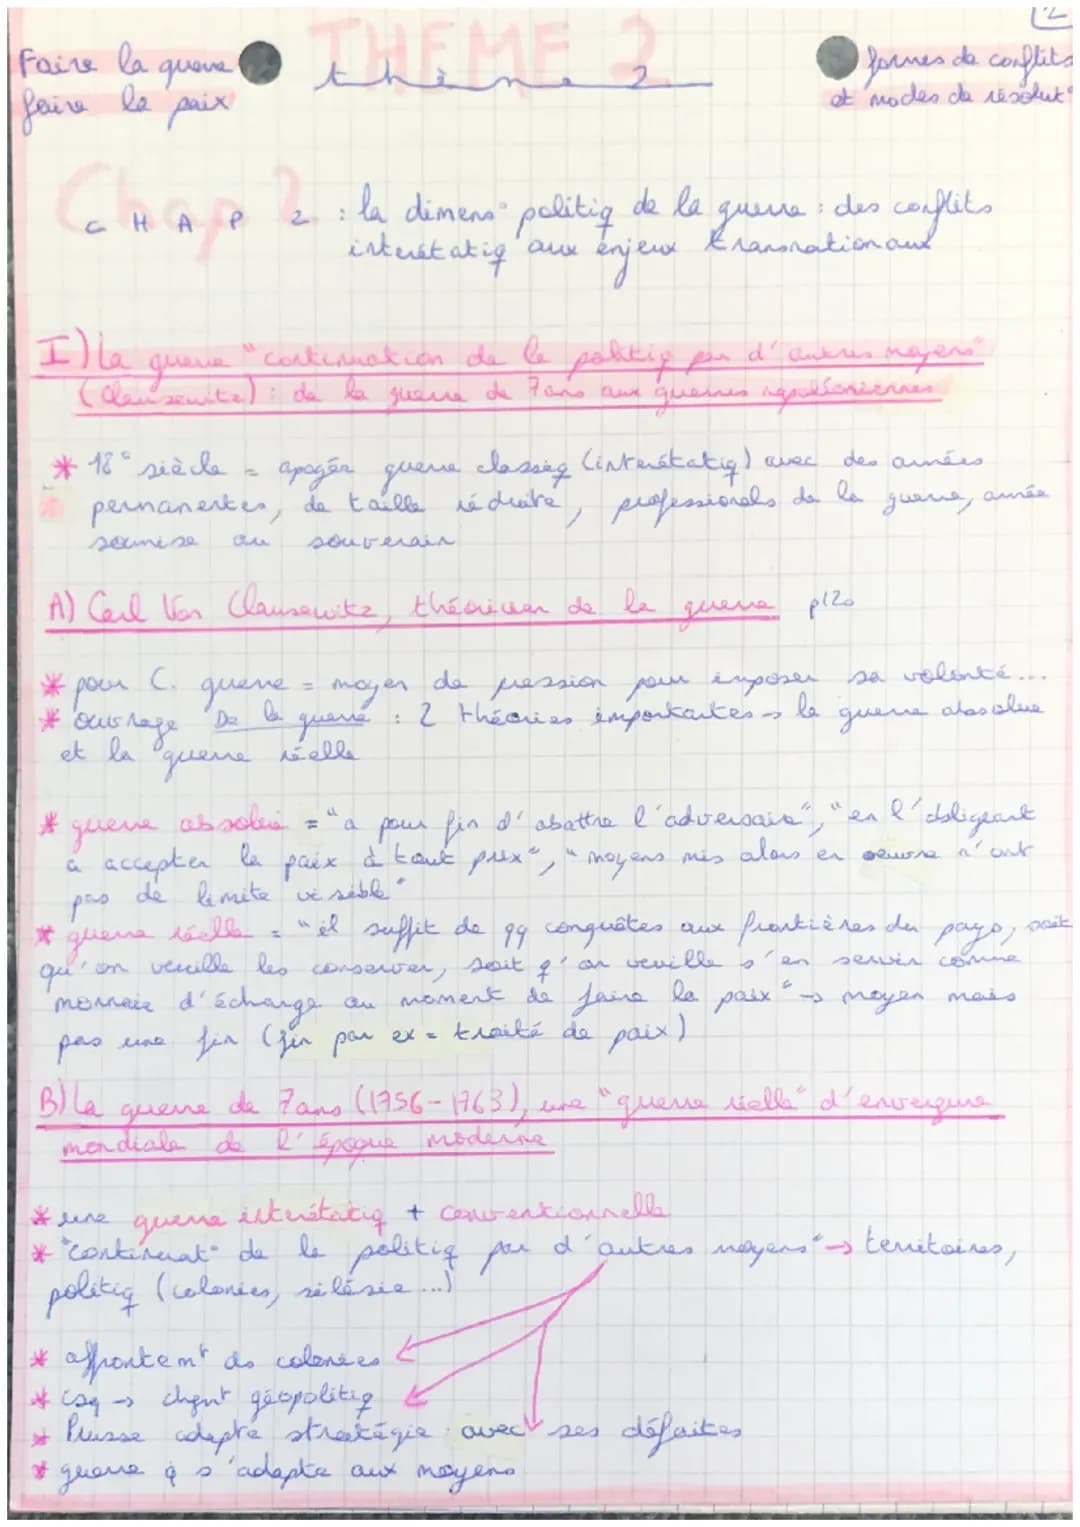 Faire la guerre
faire la paix
THEME 2
thème 2
formes de conflits
et modes de résolut°
Chap 2
CHAP 2 : la dimens° politiq de la guerre : des conflits
interétatiq aux enjeux transnationaux
I) La guerre "continuation de la politiq par d'autres moyens"
(Clausewitz) : de la guerre de 7ans aux guerres napoléoniennes
* 18° siècle = apogée guerre classiq (interétatiq) avec des armées
permanentes, de taille réduite, professionals de la guerre, armée
soumise au souverain
A) Carl Von Clausewitz, théoricien de la guerre p120
* pour C. guerre = moyen de pression pour imposer sa volonté...
* ouvrage De la guerre : 2 théories importantes → la guerre absolue
et la guerre réelle
* guerre absolue = "a pour fin d'abattre l'adversaire", "en l'obligeant
a accepter la paix à tout prix", "moyens mis alors en oeuvre n'ont
pas de limite visible"
* guerre réelle = "il suffit de qq conquêtes aux frontières du pays, soit
qu'on veuille les conserver, soit q'on veuille s'en servir comme
monnaie d'échange au moment de faire la paix" → moyen mais
pas une fin (fin par ex = traité de paix)
B) La guerre de 7ans (1756-1763), une "guerre réelle" d'envergure
mondiale de l'époque moderne
* une guerre interétatiq + conventionnelle
* "continuat° de la politiq par d'autres moyens" → territoires,
politiq (colonies, silésie...)
* affrontemt ds colonies
* csq → chgmt géopolitiq
* Prusse adapte stratégie avec ses défaites
* guerre q s'adapte aux moyens